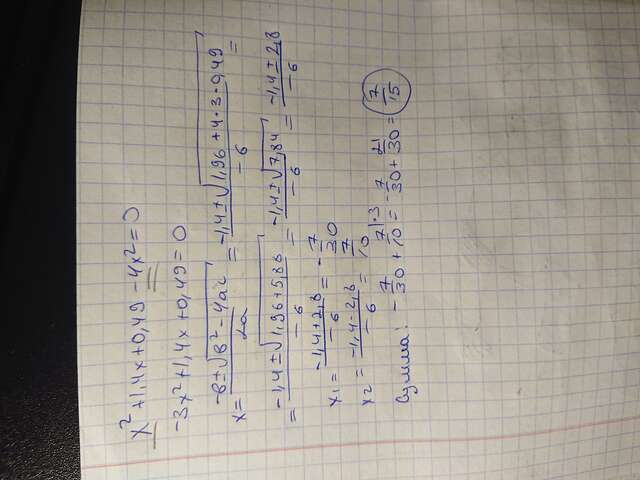 x² + 1,4x + 0,49 - 4x² = 0
-3x² + 1,4x + 0,49 = 0
x = (-в ± √(в² - 4ac)) / 2a = (-1,4 ± √(1,96 + 4·3·0,49)) / -6 =
= (-1,4 ± √(1,96 + 5,88)) / -6 = (-1,4 ± √7,84) / -6 = (-1,4 ± 2,8) / -6
x1 = (-1,4 + 2,8) / -6 = -7/30
x2 = (-1,4 - 2,8) / -6 = 7/10
Сумма: -7/30 + 7/10 |·3 = -7/30 + 21/30 = 7/15